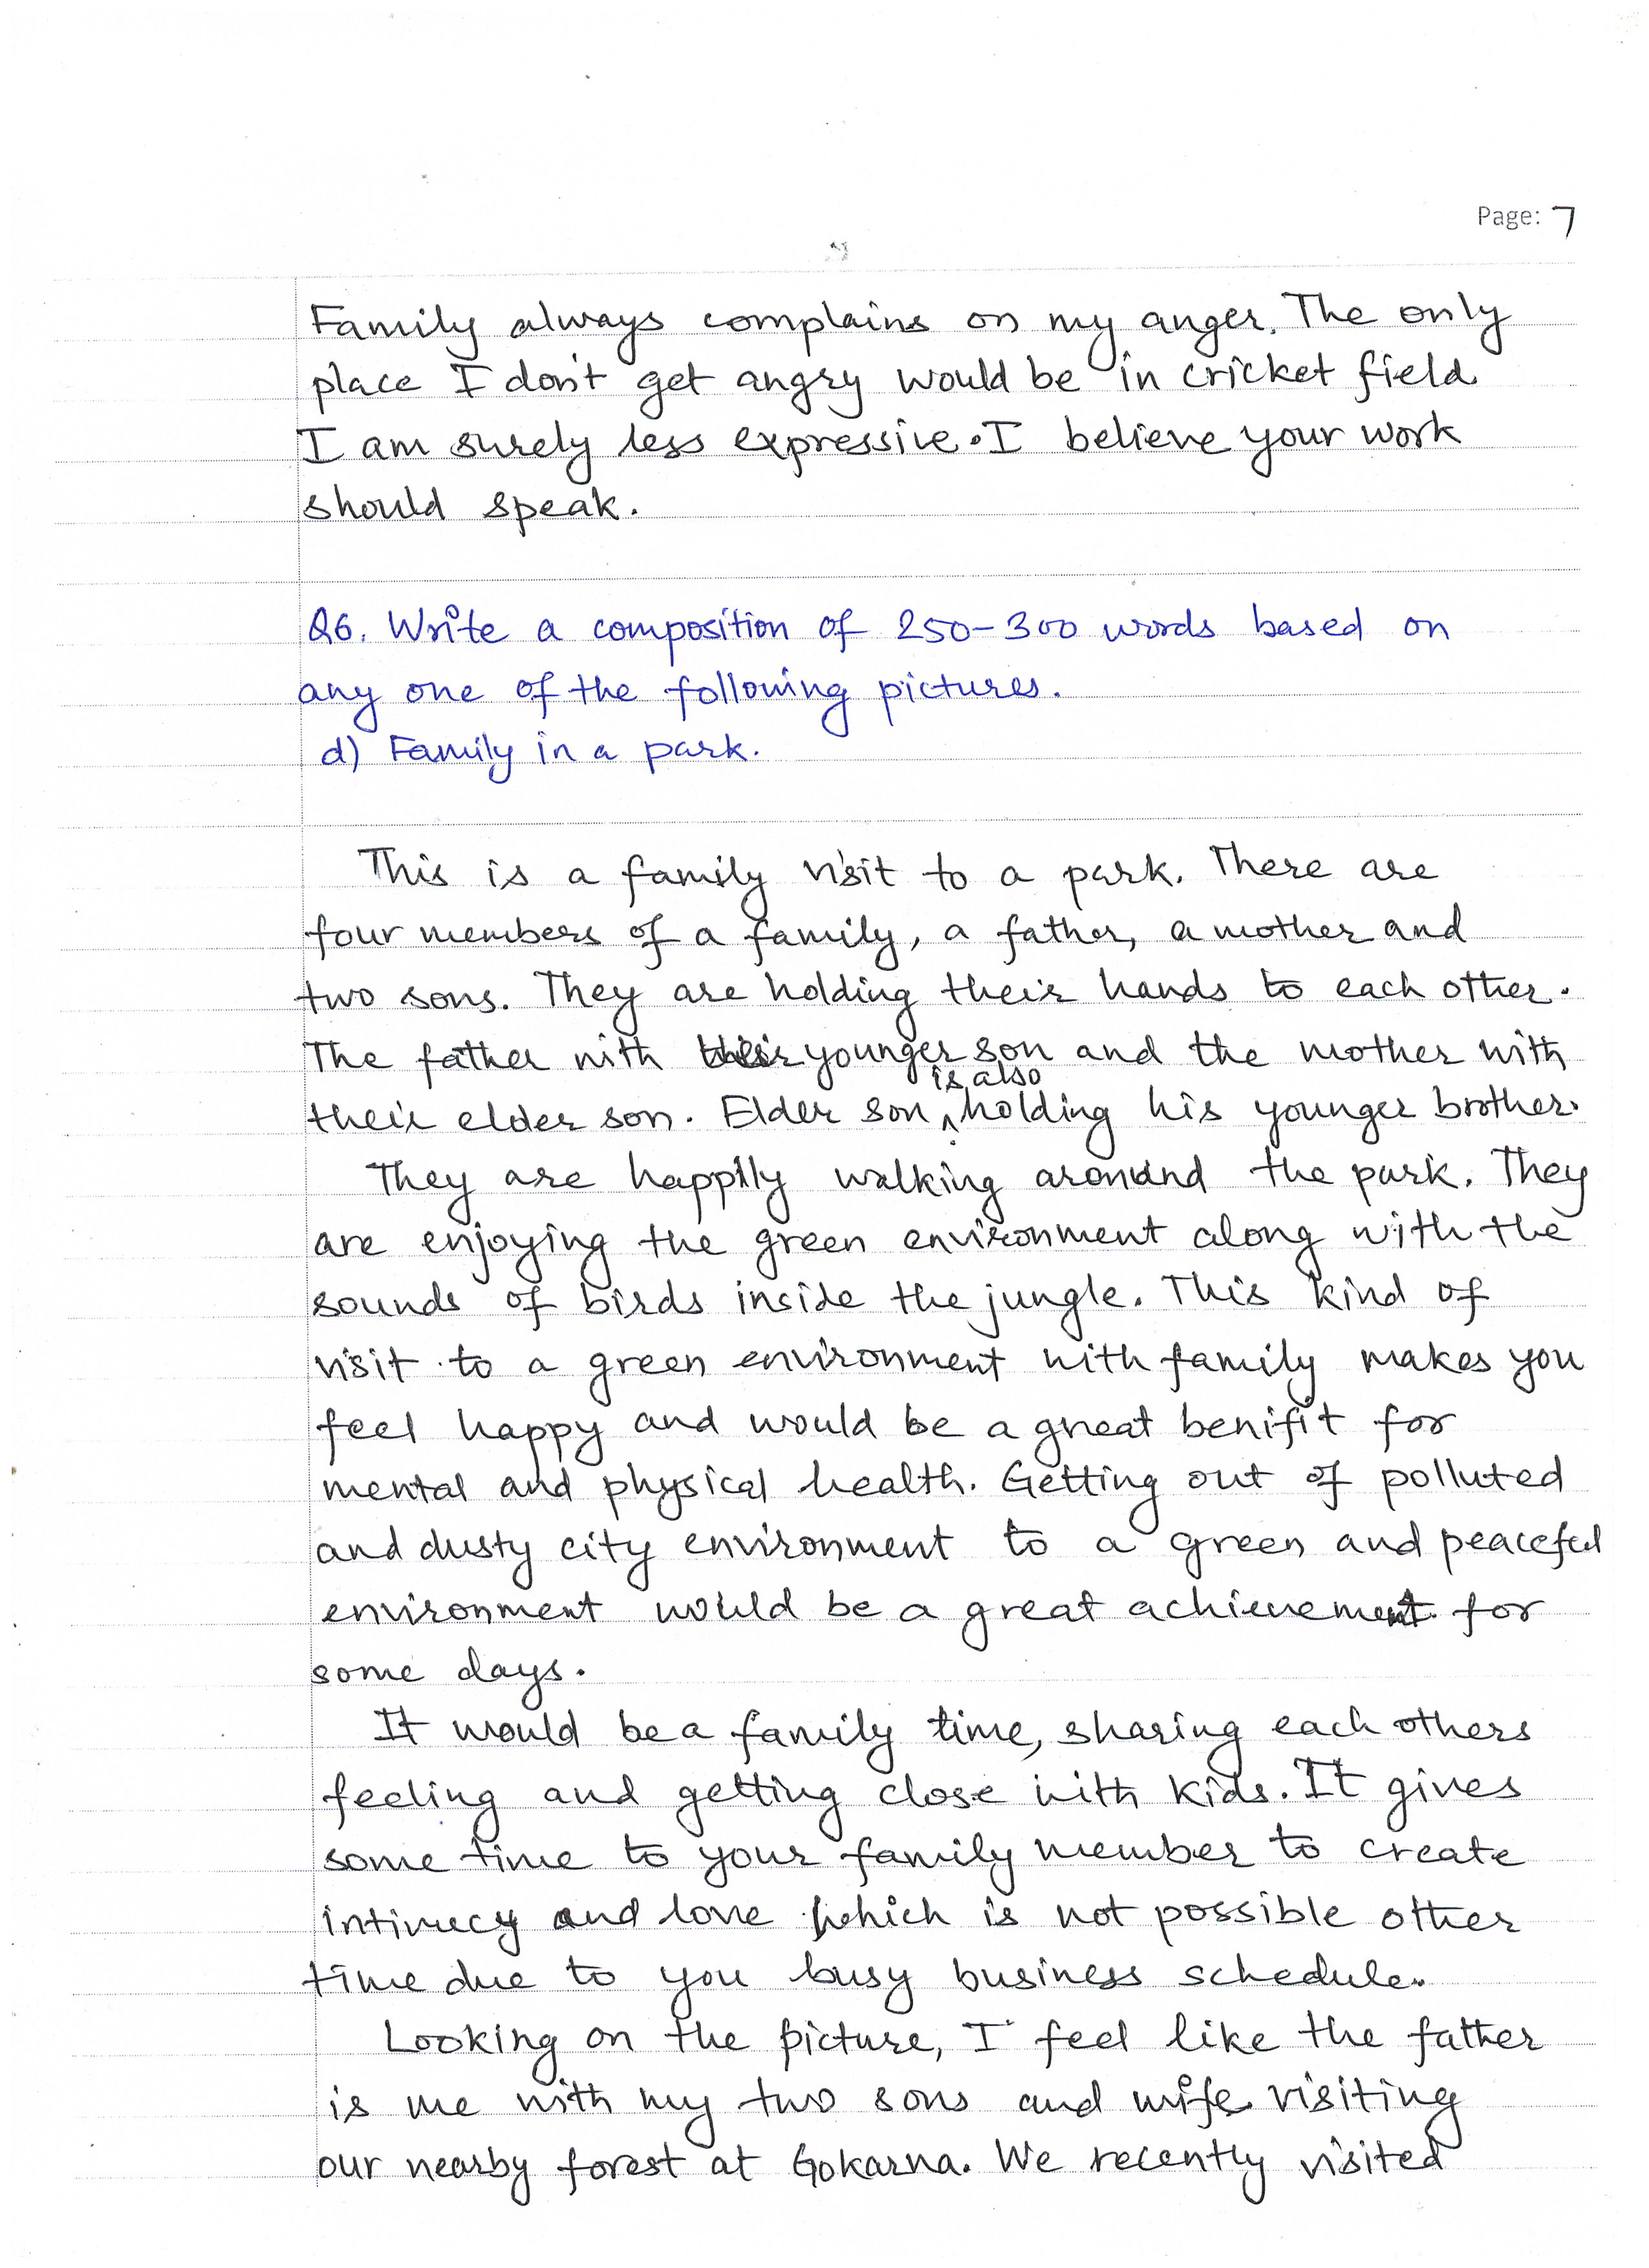 Page: 7
Family always complains on my anger. The only
place I don't get angry would be in cricket field
I am surely less expressive. I believe your work
should speak.
Q6. Write a composition of 250-300 words based on
any one of the following pictures.
d) Family in a park.
This is a family visit to a park. There are
four members of a family, a father, a mother and
two sons. They are holding their hands to each other.
The father with their younger son and the mother with
their elder son. Elder son is also holding his younger brother.
They are happily walking around the park. They
are enjoying the green environment along with the
sounds of birds inside the jungle. This kind of
visit to a green environment with family makes you
feel happy and would be a great benifit for
mental and physical health. Getting out of polluted
and dusty city environment to a green and peaceful
environment would be a great achievement for
some days.
It would be a family time, sharing each others
feeling and getting close with kids. It gives
some time to your family member to create
intimecy and love which is not possible other
time due to you busy business schedule.
Looking on the picture, I feel like the father
is me with my two sons and wife visiting
our nearby forest at Gokarna. We recently visited